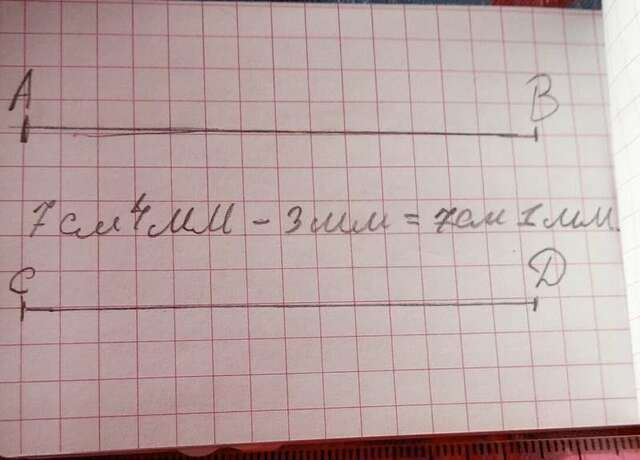 A B
7см 4мм - 3мм = 7см 1мм.
C D